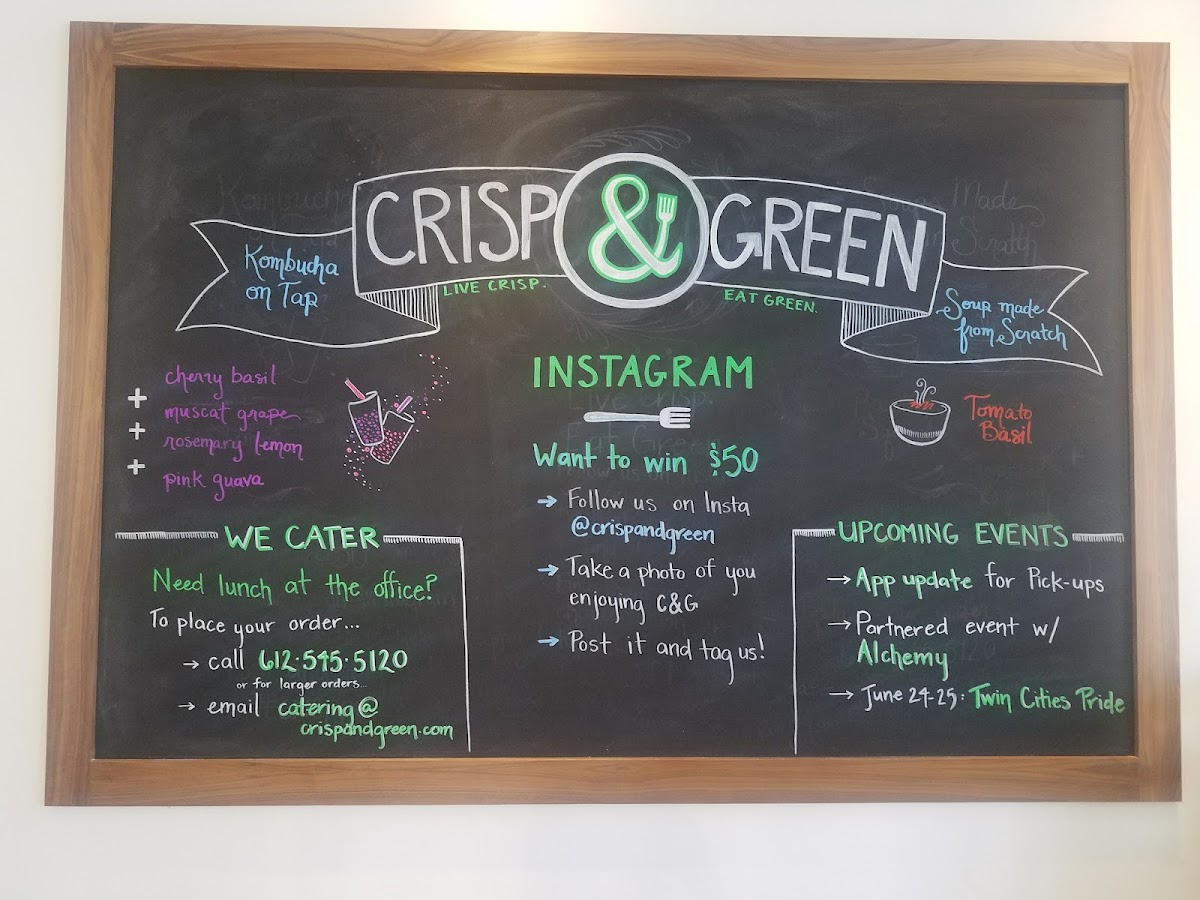 CRISP & GREEN
LIVE CRISP.
EAT GREEN.
Kombucha
on Tap
Soup made
from Scratch
+ cherry basil
+ muscat grape
+ rosemary lemon
pink guava
INSTAGRAM
Want to win $50
→ Follow us on Insta
@crispandgreen
→ Take a photo of you
enjoying C&G
→ Post it and tag us!
Tomato
Basil
WE CATER
Need lunch at the office?
To place your order...
→ call 612·545·5120
or for larger orders...
→ email catering@
crispandgreen.com
UPCOMING EVENTS
→ App update for Pick-ups
→ Partnered event w/
Alchemy
→ June 24-25: Twin Cities Pride